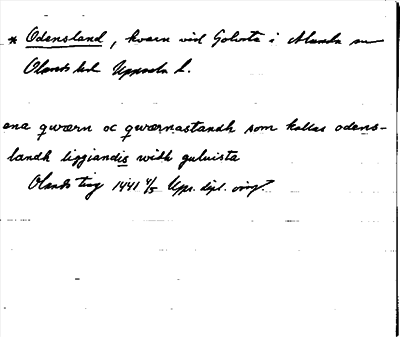 * Odensland, kvarn vid Golvsta i Alunda sn
Olands hd Uppsala l.
ena qwærn oc qwærnastandh som kallas odens-
landh liggiandis widh guluista
Olands ting 1441 4/5 Ups. dipl. orig.